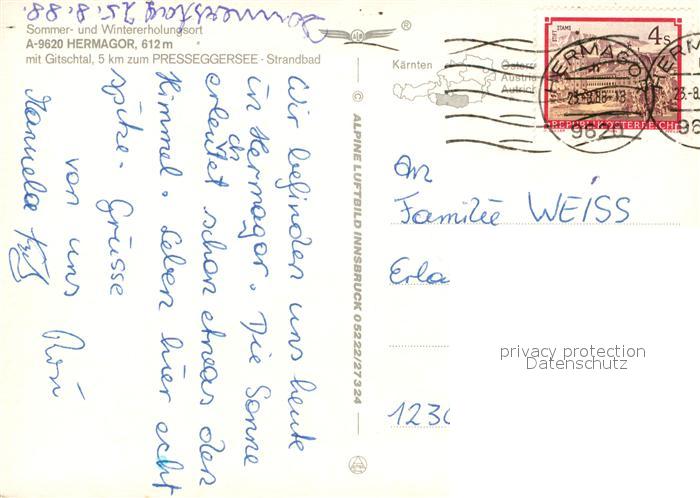 Donnerstag 25.8.88.
Sommer- und Wintererholungsort
A-9620 HERMAGOR, 612 m
mit Gitschtal, 5 km zum PRESSEGGERSEE - Strandbad
®
Kärnten
Österre
Austria
Autrich
4s
STIFT STAMS
REPUBLIK ÖSTERREICH
HERMAGOR
23.-8.88-18
9620
HERM
23.-8.
96
© ALPINE LUFTBILD INNSBRUCK 05222/27324
Wir befinden uns heute
in Hermagor. Die Sonne
schon etwas den
Himmel. Leben hier echt
spitze. Grüsse
von uns
Manuela
An
Familie WEISS
Erla
1230
privacy protection
Datenschutz